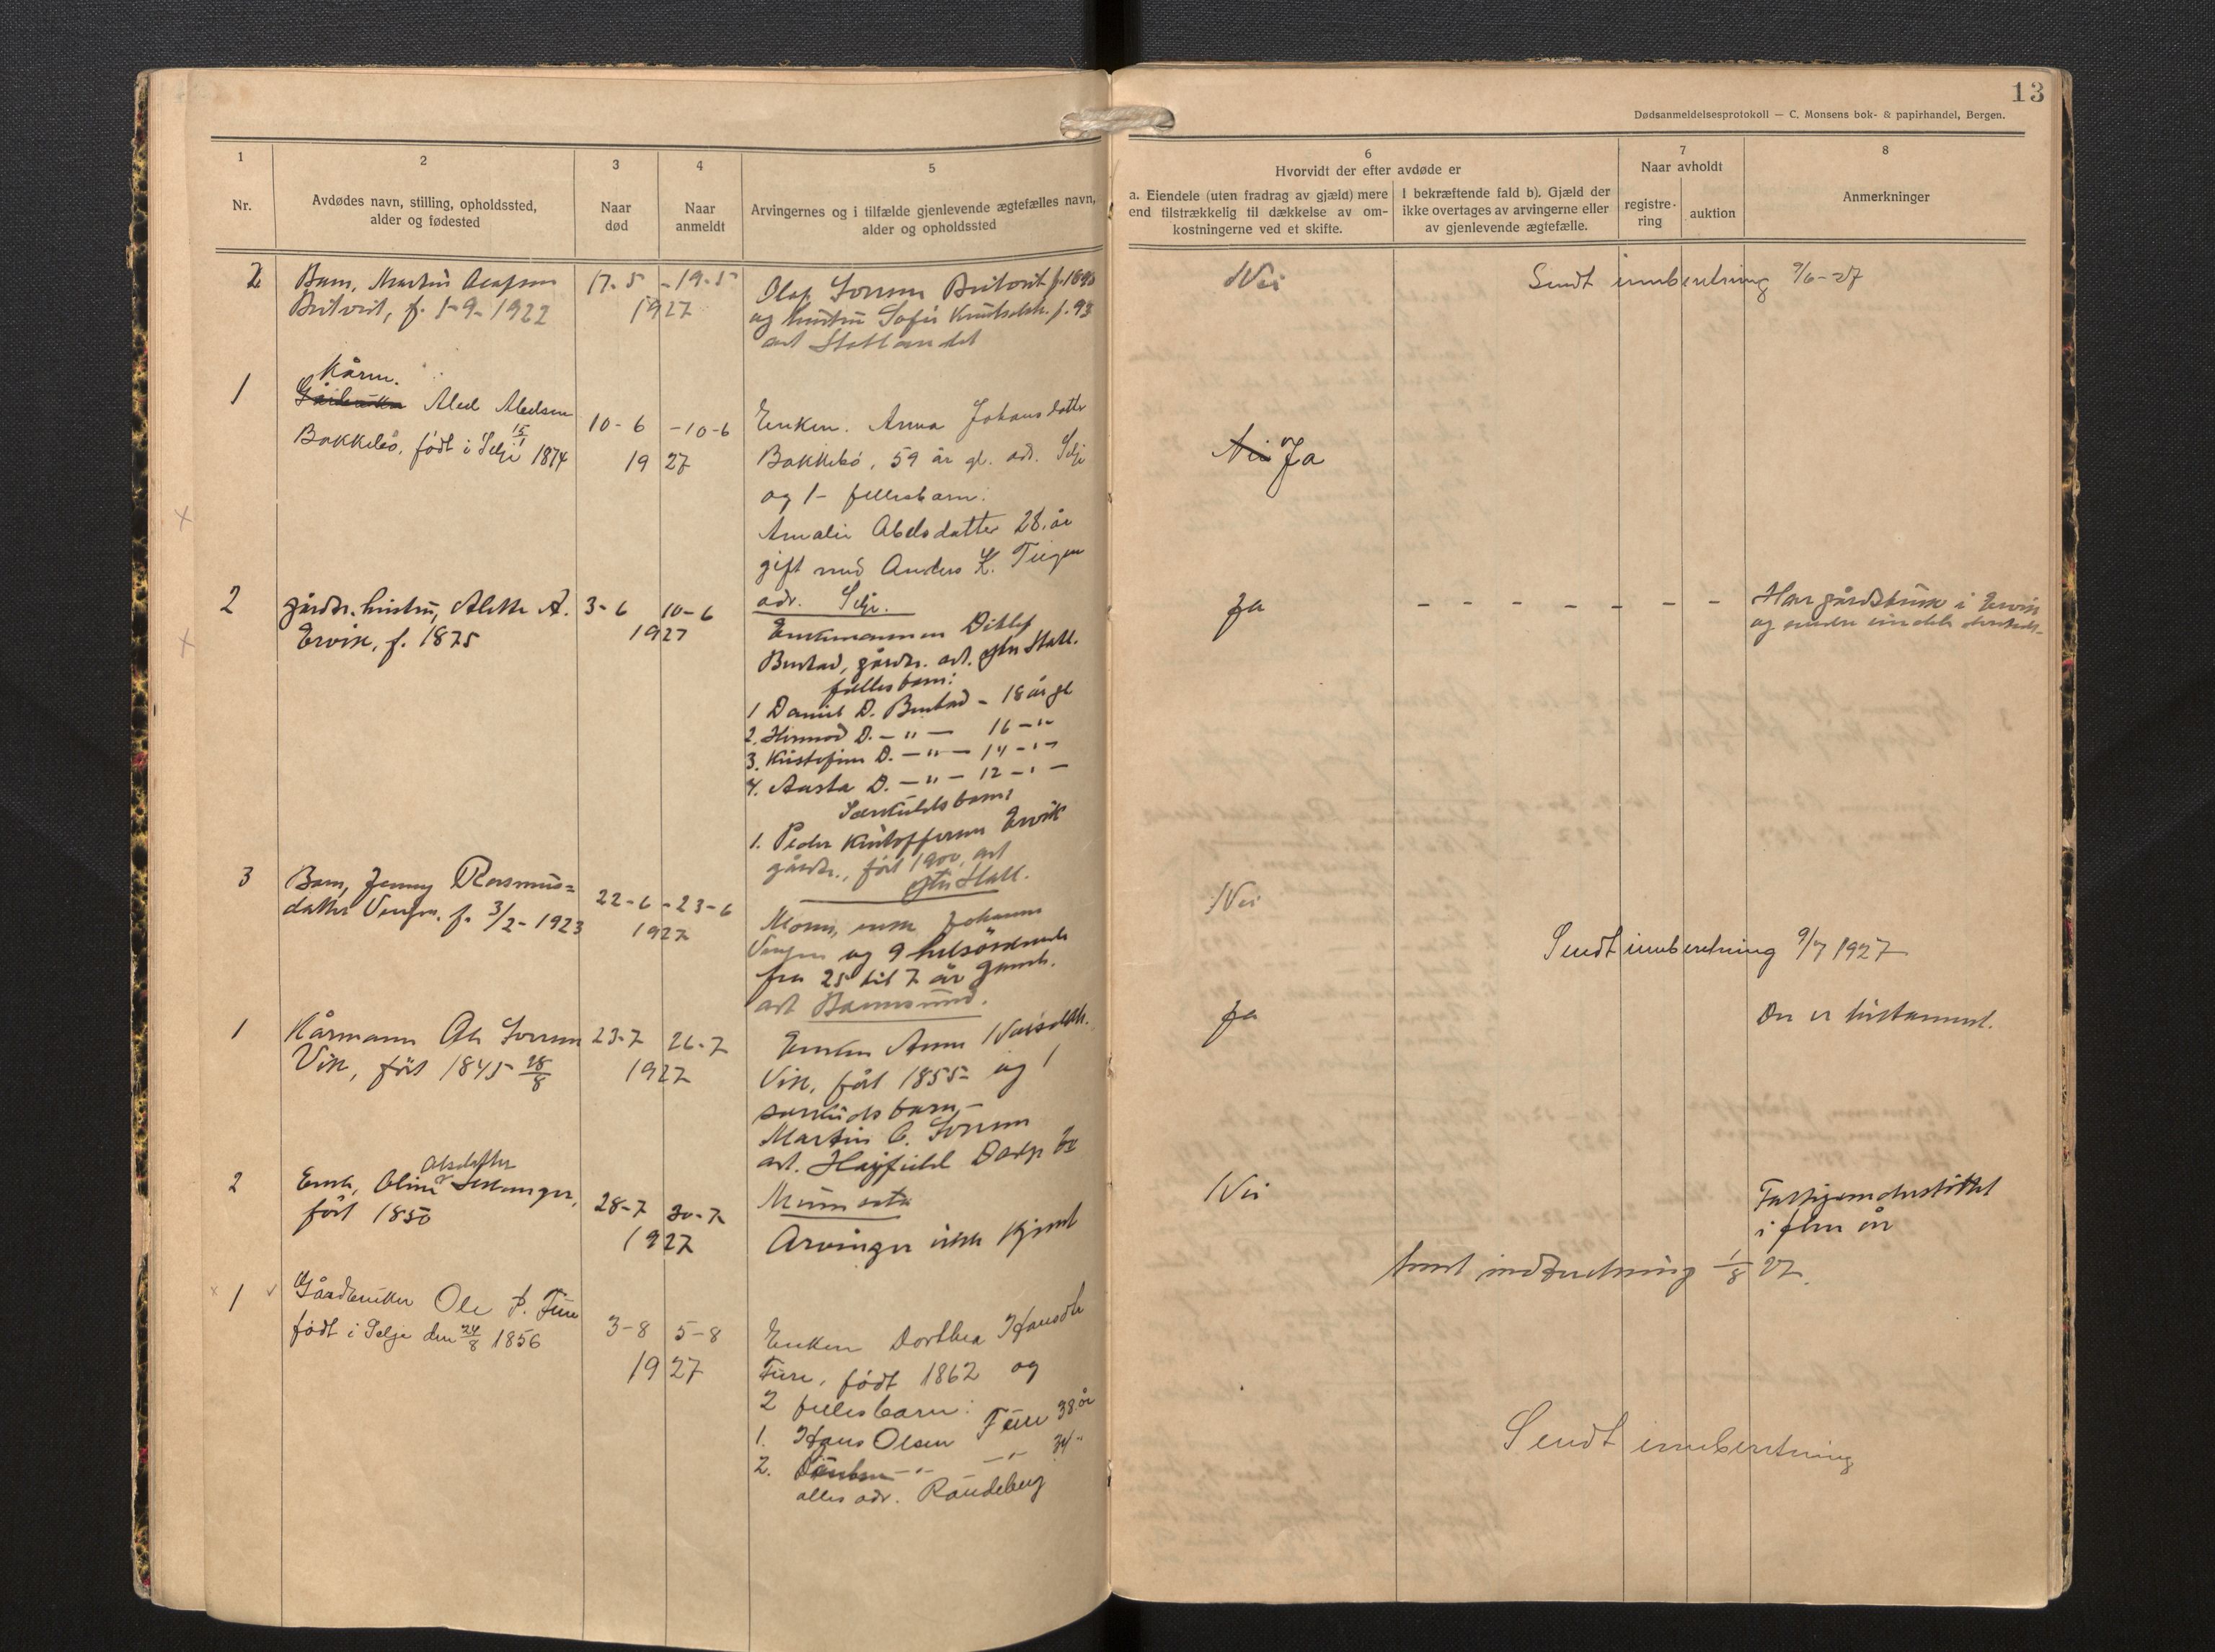 13
Dødsanmeldelsesprotokoll — C. Monsens bok- & papirhandel, Bergen.
1
2
3
4
5
6
7
8
Nr.
Avdødes navn, stilling, opholdssted,
alder og fødested
Naar
død
Naar
anmeldt
Arvingernes og i tilfælde gjenlevende ægtefælles navn,
alder og opholdssted
Hvorvidt der efter avdøde er
a. Eiendele (uten fradrag av gjæld) mere
end tilstrækkelig til dækkelse av om-
kostningerne ved et skifte.
I bekræftende fald b). Gjæld der
ikke overtages av arvingerne eller
av gjenlevende ægtefælle.
Naar avholdt
registre-
ring
auktion
Anmerkninger
2
Barn, Martin Olafsen
f. 1-9-1922
17-5 - 19-5
1927
Olaf f. 1890
og hustru Sofie f. 93
adr Statlandet
Nei
Sendt innberetning 9/6-27
1
Kårm.
Gårdbruker Abel Abelsen
Bakkebø, født i Selje 15/1 1874
10-6 - 10-6
1927
Enken. Anna Johansdatter
Bakkebø, 59 år gl. adr. Selje
og 1 fellesbarn:
Amalie Abelsdatter 28 år
gift med Anders K. Teigen
adr. Selje.
Nei Ja
2
gårdbr. hustru, Alette A.
Ervik, f. 1875
3-6 10-6
1927
Enkemannen Ditlef
Bustad, gårdbr. adr. ytre Statl.
fellesbarn:
1 Daniel D. Bustad - 18 år gl
2. D. — " — 16 - " -
3. D. — " — 14 - " -
4. Aasta D. — " — 12 - " -
Særkuldsbarn:
1. Peder Kristoffersen Ervik
gårdbr., født 1900, adr
ytre Statl.
Ja
- - - - - - -
Har gårdsbruk i Ervik
og
3
Barn, Jenny Rasmus=
datter f. 3/2-1923
22-6 - 23-6
1927
Moren, enke Johanne
og 9 helsøskende
fra 25 til 7 år gamle.
adr
Nei
Sendt innberetning 9/7 1927
1
Kårmann Ole
Vik, født 1845 28/8
23-7 26-7
1927
Enken Anne
Vik, født 1855 og 1
særkuldsbarn,-
Martin O.
adr. Hayfield
Ja
Der er testament.
2
Enke, Oline Olsdatter
født 1850
28-7 30-7
1927
Arvinger ikke kjent
Nei
Fattigunderstøttet
i flere år
Sendt indberetning 1/8 27.
1
Gårdbruker Ole P. Fure
født i Selje den 24/8 1856
3-8 5-8
1927
Enken Dorthea Hansdtr
Fure, født 1862 og
2 fellesbarn:
1. Hans Olsen Fure 38 år
2. - " - - " - 34 "
alles adr. Raudeberg
Sendt innberetning